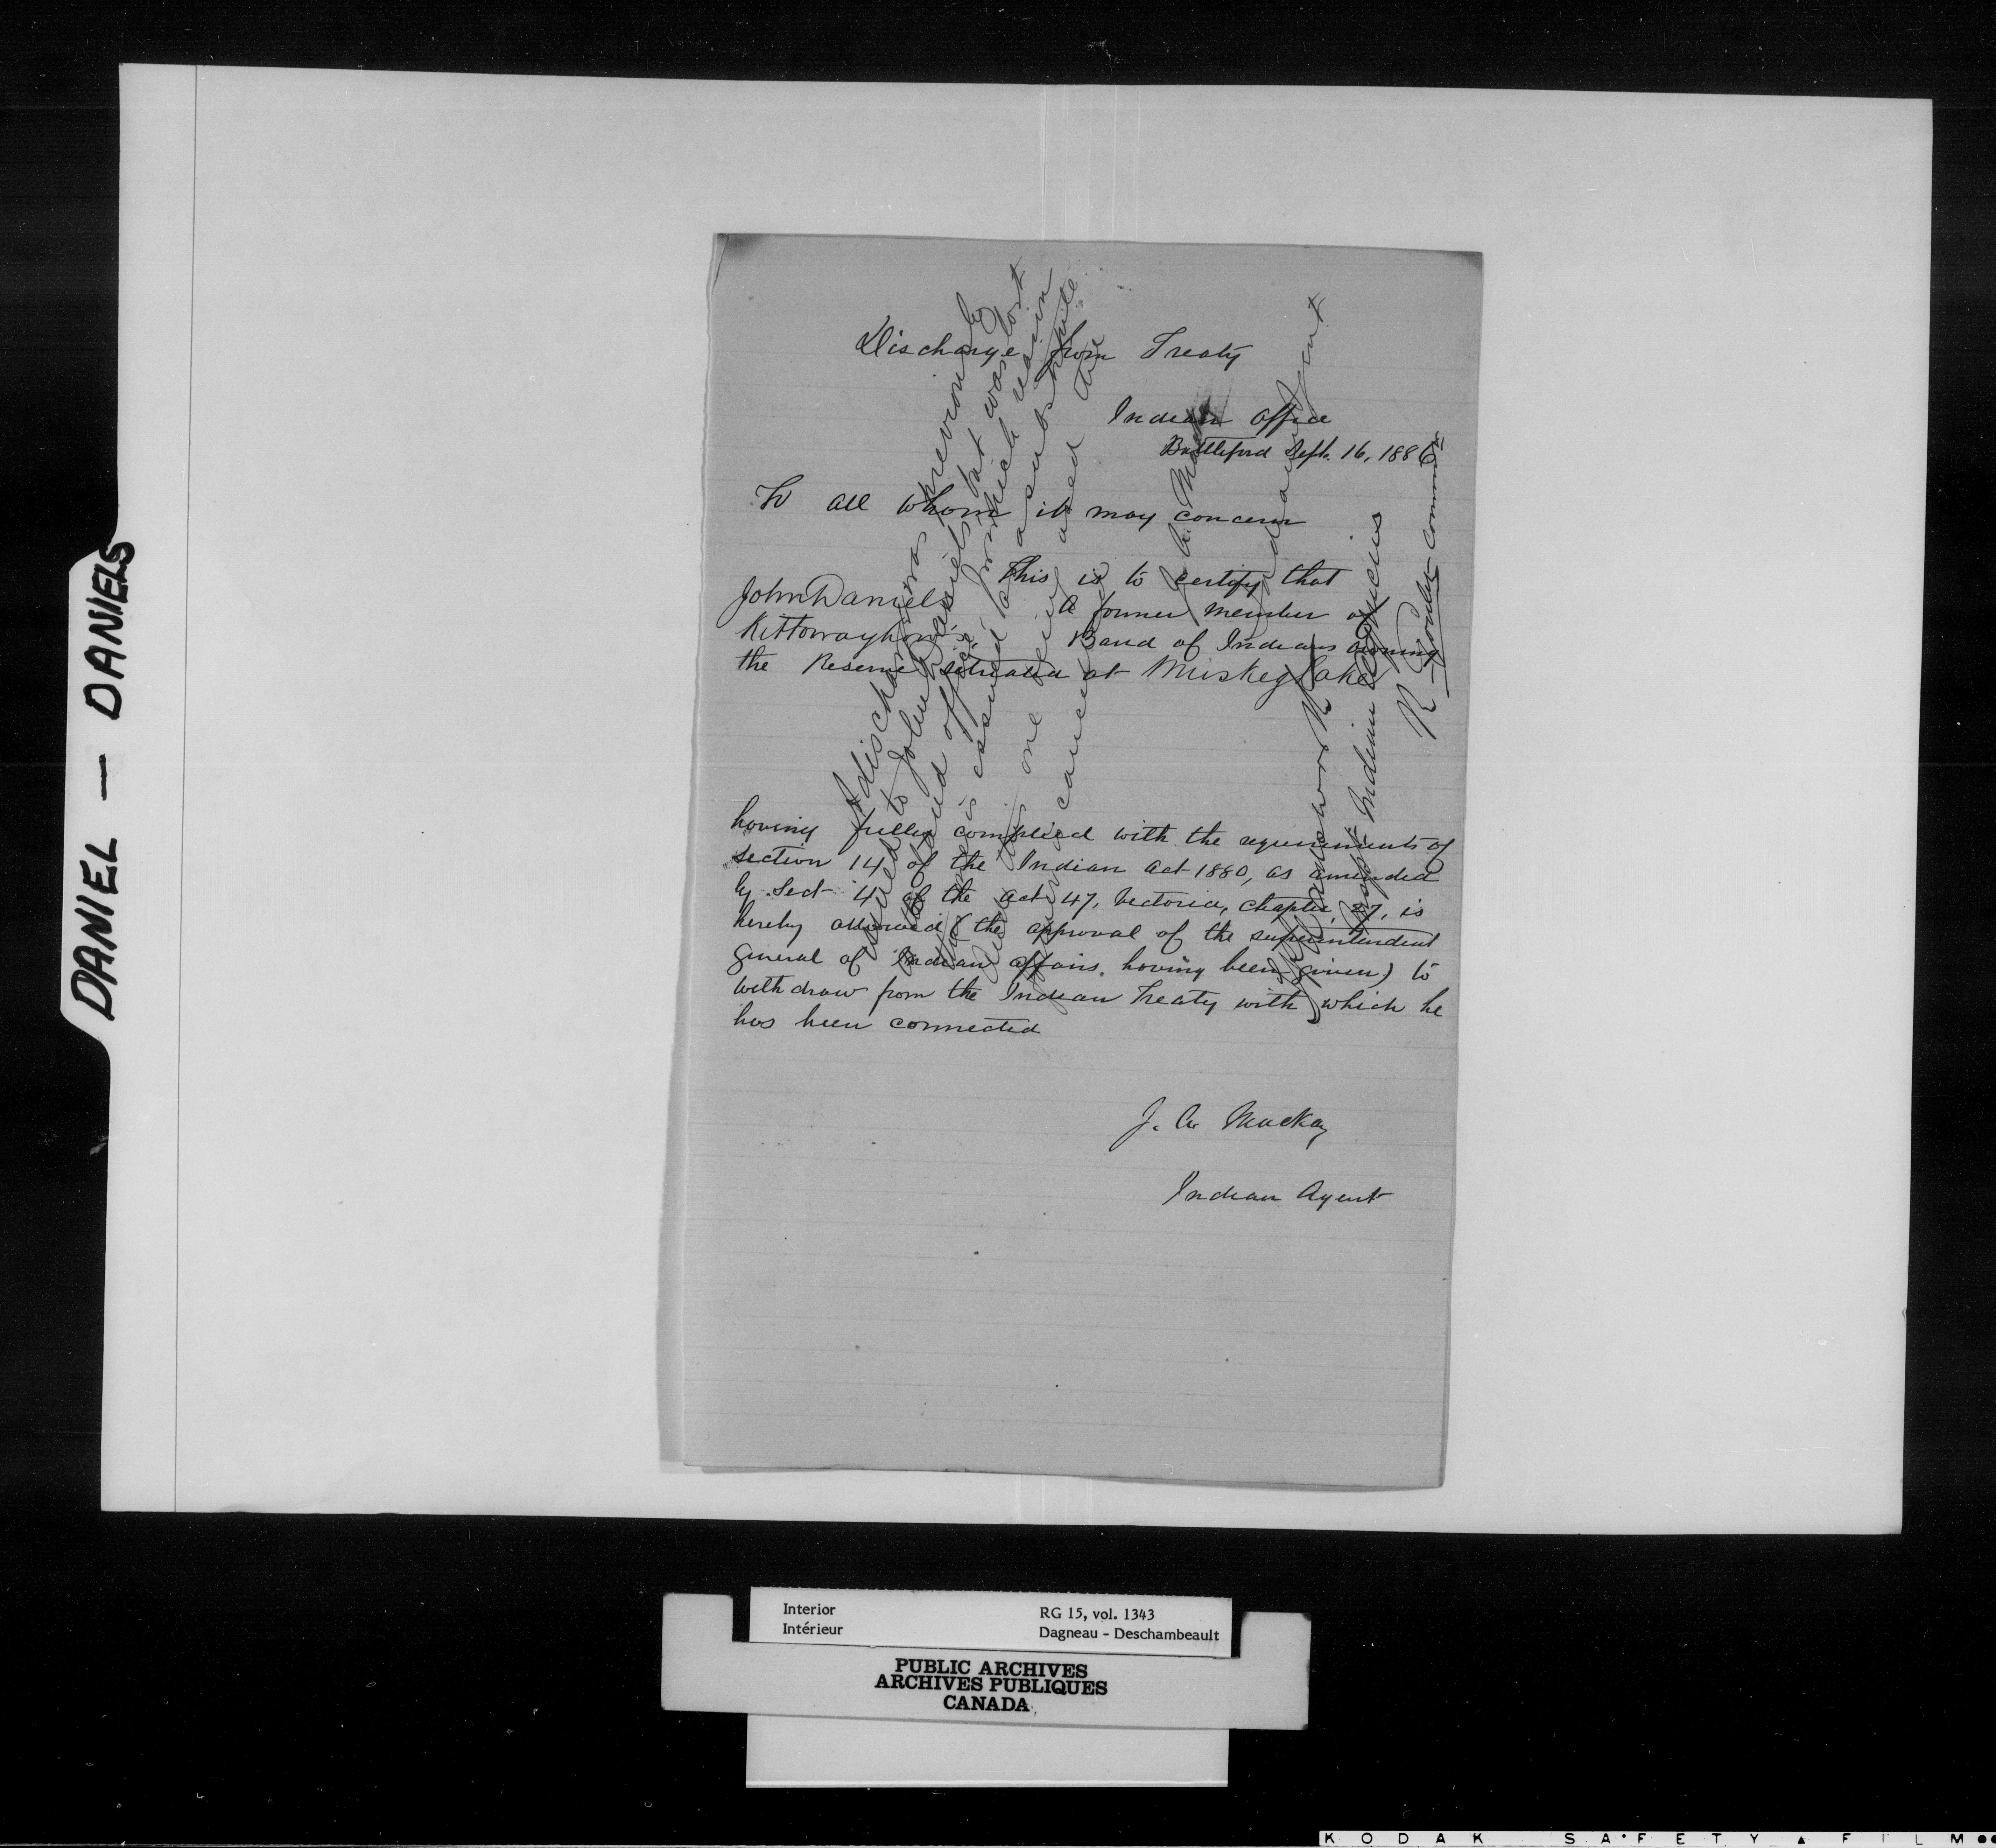 DANIEL — DANIELS
Discharge from Treaty
Indian Office
Battleford Sept. 16, 1886
To all whom it may concern
This is to certify that
John Daniels a former member of
Kittowayhow's Band of Indians owning
the Reserve situated at Muskeg Lake
having fully complied with the requirements of
section 14 of the Indian act 1880, as amended
by Sect 4 of the act 47, Victoria, Chapter 27, is
hereby allowed (the approval of the superintendent
general of Indian affairs. having been given) to
withdraw from the Indian Treaty with which he
has been connected
J. A. MacKay
Indian Agent
A discharge was previously
issued to John Daniels but was lost
in the Land office
this one is issued from which
as a substitute
one being used the
cancelled
J. A. MacKay
Indian Agent
Indian Agencies
R Goulet Commr
Interior RG 15, vol. 1343
Intérieur Dagneau - Deschambeault
PUBLIC ARCHIVES
ARCHIVES PUBLIQUES
CANADA
KODAK SAFETY FILM